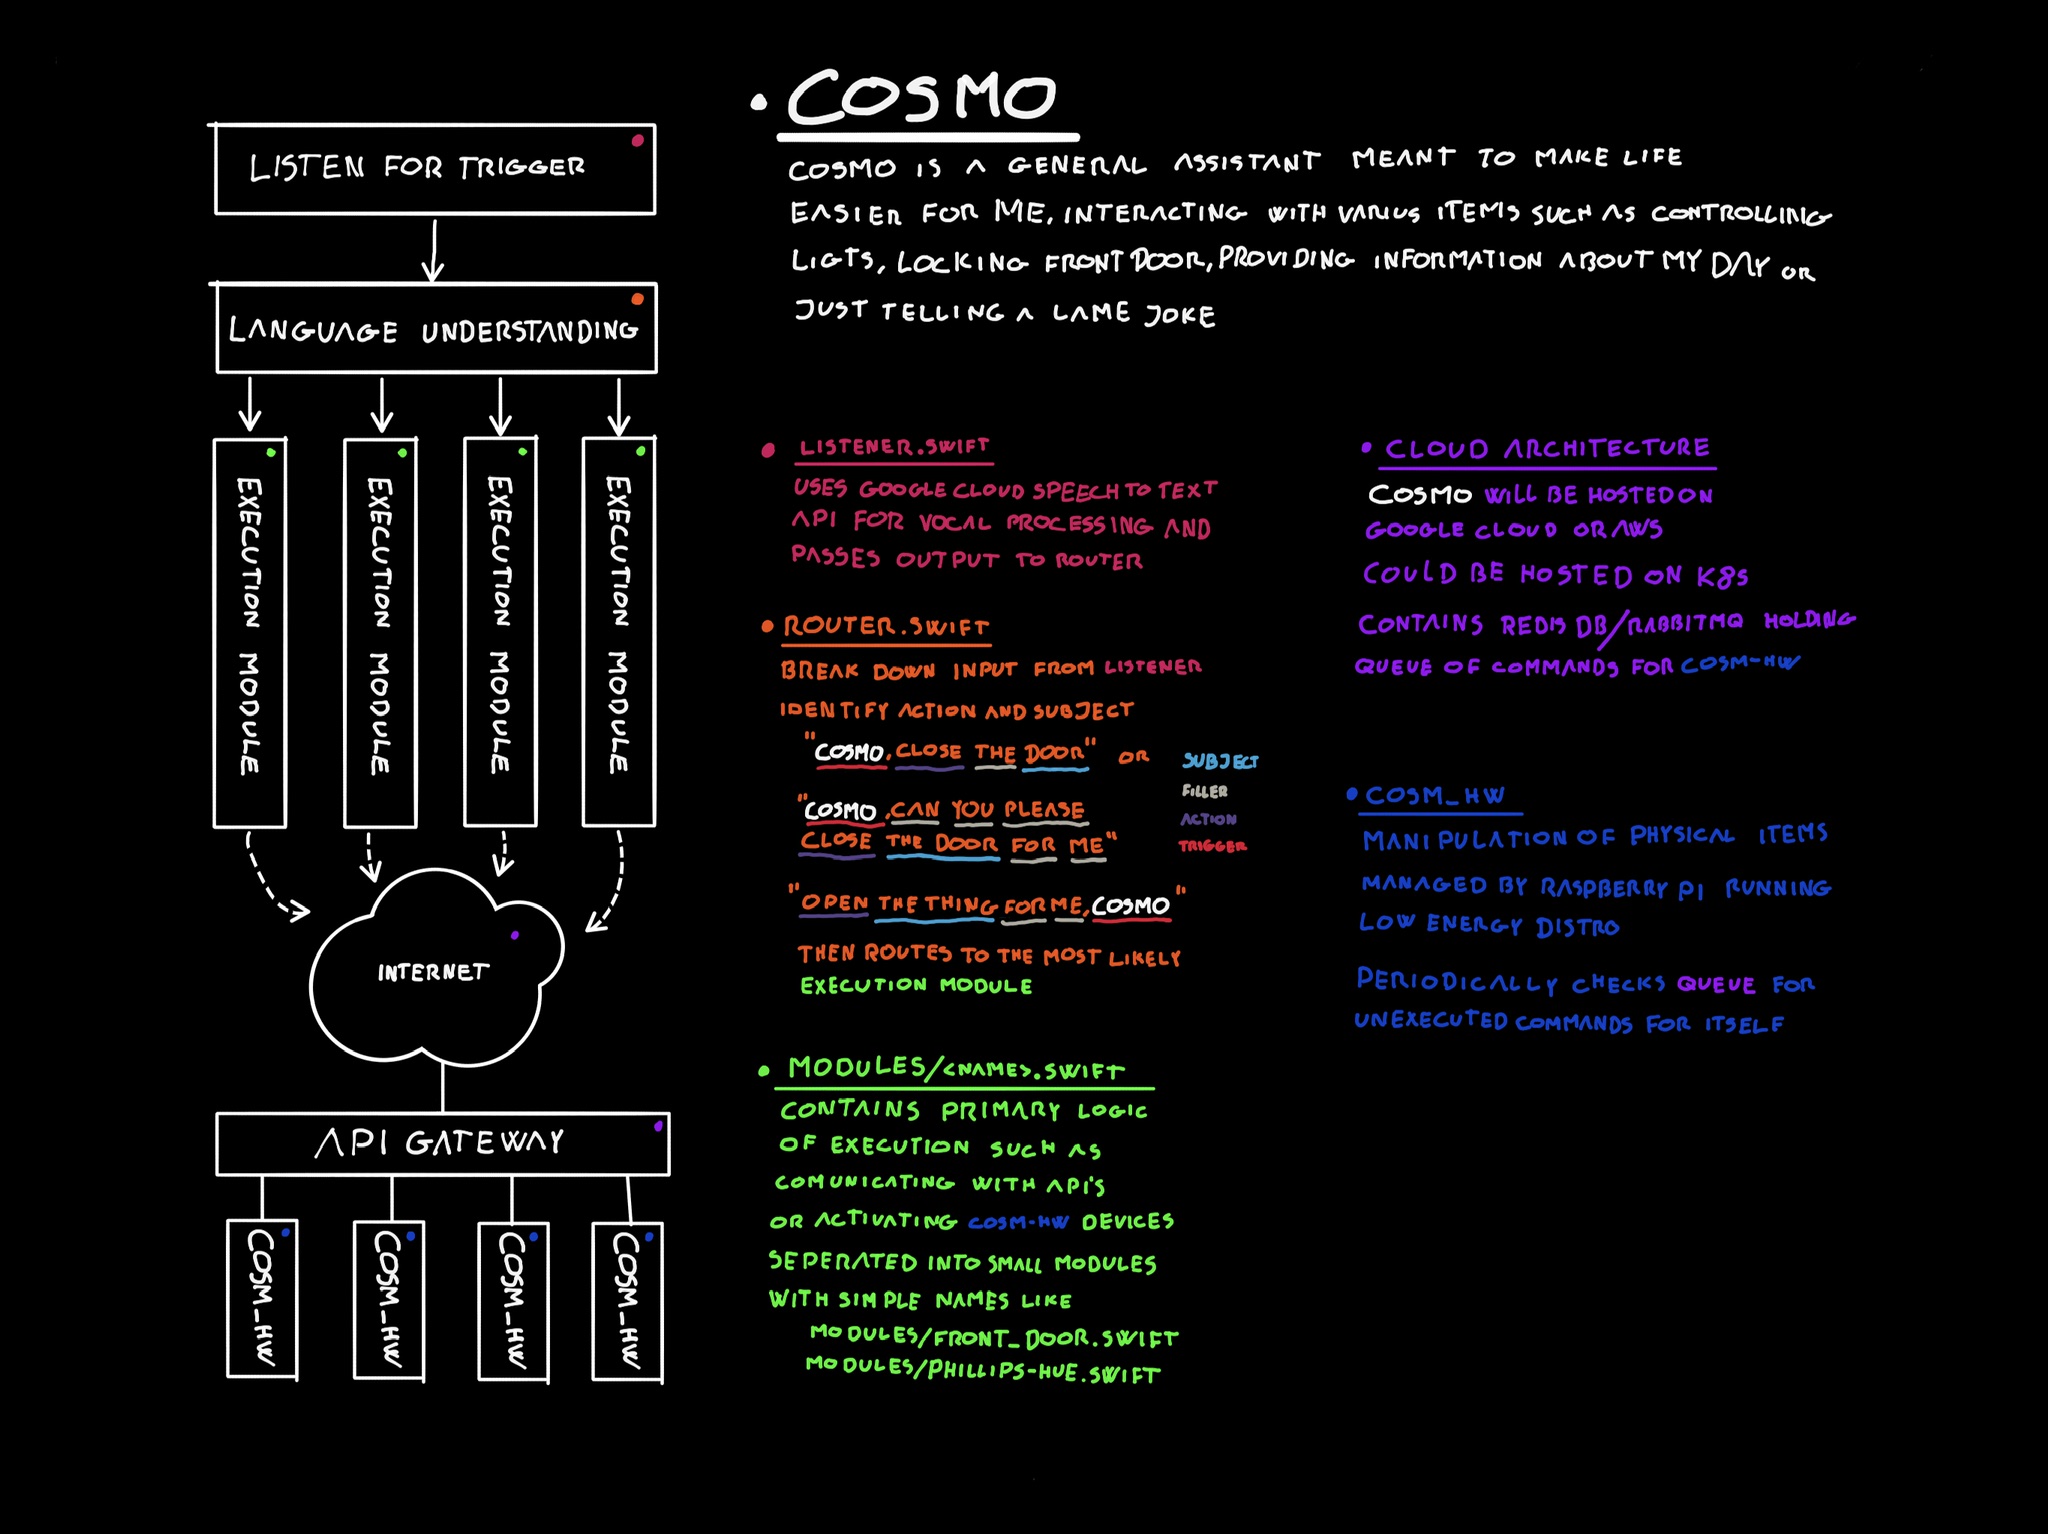 LISTEN FOR TRIGGER
LANGUAGE UNDERSTANDING
EXECUTION MODULE
EXECUTION MODULE
EXECUTION MODULE
EXECUTION MODULE
INTERNET
API GATEWAY
COSM_HW
COSM_HW
COSM_HW
COSM_HW
• COSMO
COSMO IS A GENERAL ASSISTANT MEANT TO MAKE LIFE
EASIER FOR ME, INTERACTING WITH VARIUS ITEMS SUCH AS CONTROLLING
LIGTS, LOCKING FRONT DOOR, PROVIDING INFORMATION ABOUT MY DAY OR
JUST TELLING A LAME JOKE
• LISTENER.SWIFT
USES GOOGLE CLOUD SPEECH TO TEXT
API FOR VOCAL PROCESSING AND
PASSES OUTPUT TO ROUTER
• ROUTER.SWIFT
BREAK DOWN INPUT FROM LISTENER
IDENTIFY ACTION AND SUBJECT
"COSMO, CLOSE THE DOOR" OR
"COSMO, CAN YOU PLEASE
CLOSE THE DOOR FOR ME"
"OPEN THE THING FOR ME, COSMO"
SUBJECT
FILLER
ACTION
TRIGGER
THEN ROUTES TO THE MOST LIKELY
EXECUTION MODULE
• MODULES/<NAMES>.SWIFT
CONTAINS PRIMARY LOGIC
OF EXECUTION SUCH AS
COMUNICATING WITH API'S
OR ACTIVATING COSM-HW DEVICES
SEPERATED INTO SMALL MODULES
WITH SIMPLE NAMES LIKE
MODULES/FRONT_DOOR.SWIFT
MODULES/PHILLIPS-HUE.SWIFT
• CLOUD ARCHITECTURE
COSMO WILL BE HOSTED ON
GOOGLE CLOUD OR AWS
COULD BE HOSTED ON K8S
CONTAINS REDIS DB/RABBITMQ HOLDING
QUEUE OF COMMANDS FOR COSM-HW
• COSM_HW
MANIPULATION OF PHYSICAL ITEMS
MANAGED BY RASPBERRY PI RUNNING
LOW ENERGY DISTRO
PERIODICALLY CHECKS QUEUE FOR
UNEXECUTED COMMANDS FOR ITSELF